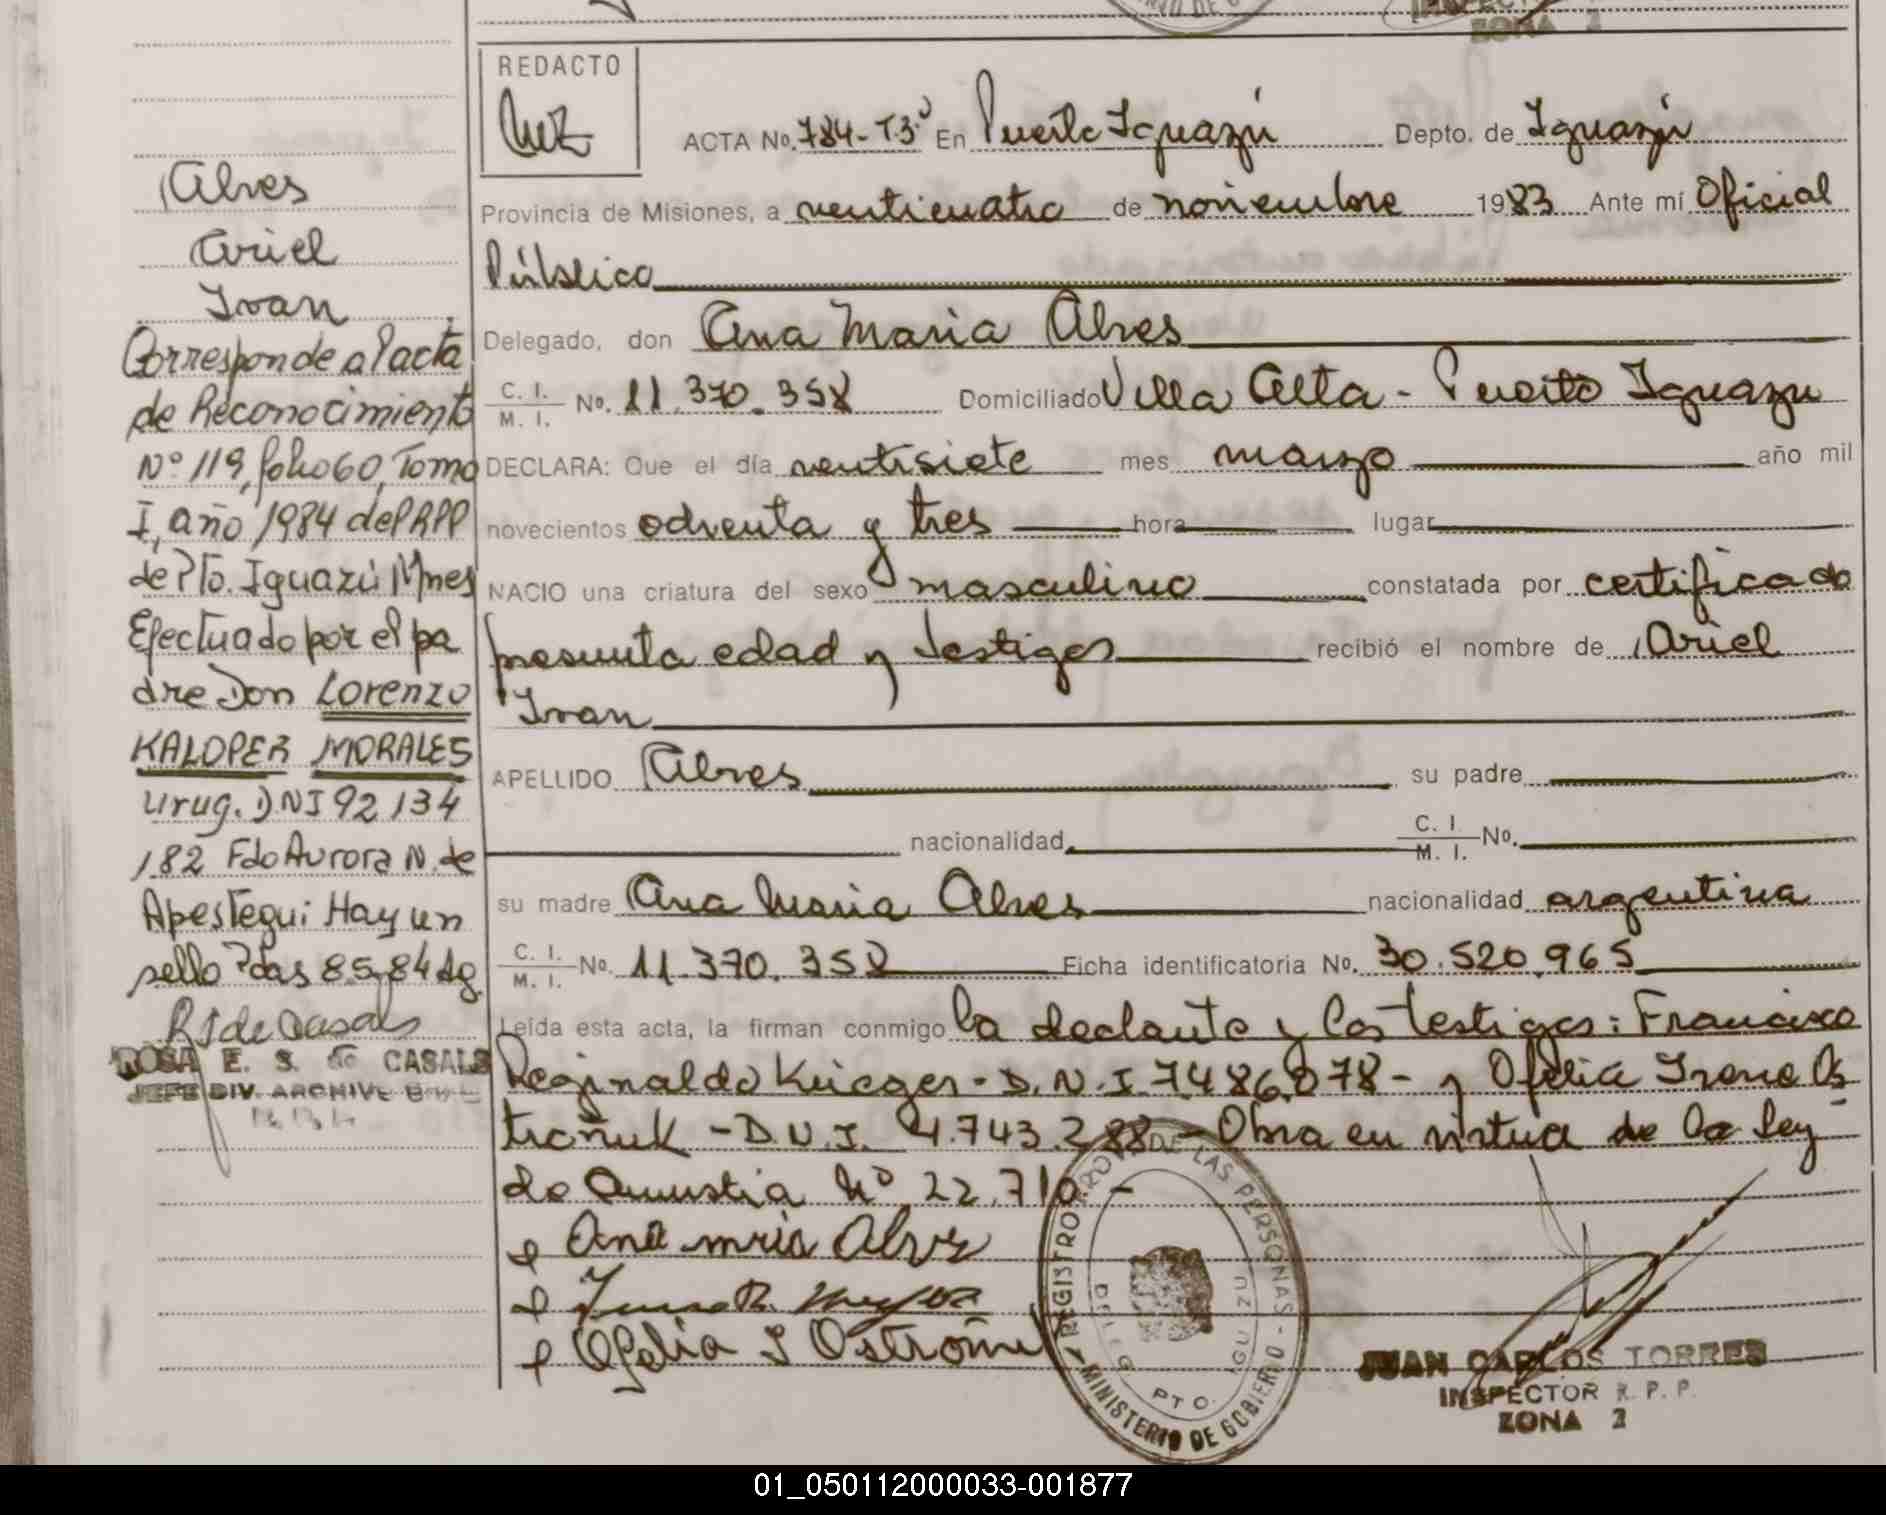 REDACTO
ACTA No. 784-T3º En Puerto Iguazú Depto. de Iguazú
Provincia de Misiones, a venticuatro de noviembre 1983 Ante mí Oficial
Público
Delegado, don Ana Maria Alves
C. I. M. I. No. 11.370.358 Domiciliado Villa Alta - Puerto Iguazu
DECLARA: Que el día ventisiete mes marzo año mil
novecientos ochenta y tres hora lugar
NACIO una criatura del sexo masculino constatada por certificado
presunta edad y testigos recibió el nombre de Ariel
Ivan
APELLIDO Alves su padre
nacionalidad C. I. M. I. No.
su madre Ana Maria Alves nacionalidad argentina
C. I. M. I. No. 11.370.358 Ficha identificatoria No. 30.520.965
Leída esta acta, la firman conmigo la declante y los testigos: Francisco
Reginaldo Krieger - D.N.I. 7.486.878 - y Ofelia Irene Os
troñuk - D.N.I. 4.743.288 - Obra en virtud de la ley
de Amnistia Nº 22.710 -
Ana mria Alvs
Ofelia I Ostroñu
Alves
Ariel
Ivan
Corresponde al acta
de Reconocimiento
Nº 119, folio 60, Tomo
I, año 1984 del RPP
de Pto. Iguazú Mnes
Efectuado por el pa
dre Don Lorenzo
KALOPER MORALES
Urug. DNI 92 134
182 Fdo Aurora N. de
Apestegui Hay un
sello Pdas 8584 dg
RS de Casals
ROSA E. S. de CASALS
JEFE DIV. ARCHIVO
REGISTRO PROV. DE LAS PERSONAS - MINISTERIO DE GOBIERNO -
DELEG. PTO. IGUAZU
JUAN CARLOS TORRES
INSPECTOR R. P. P.
ZONA 2
01_050112000033-001877